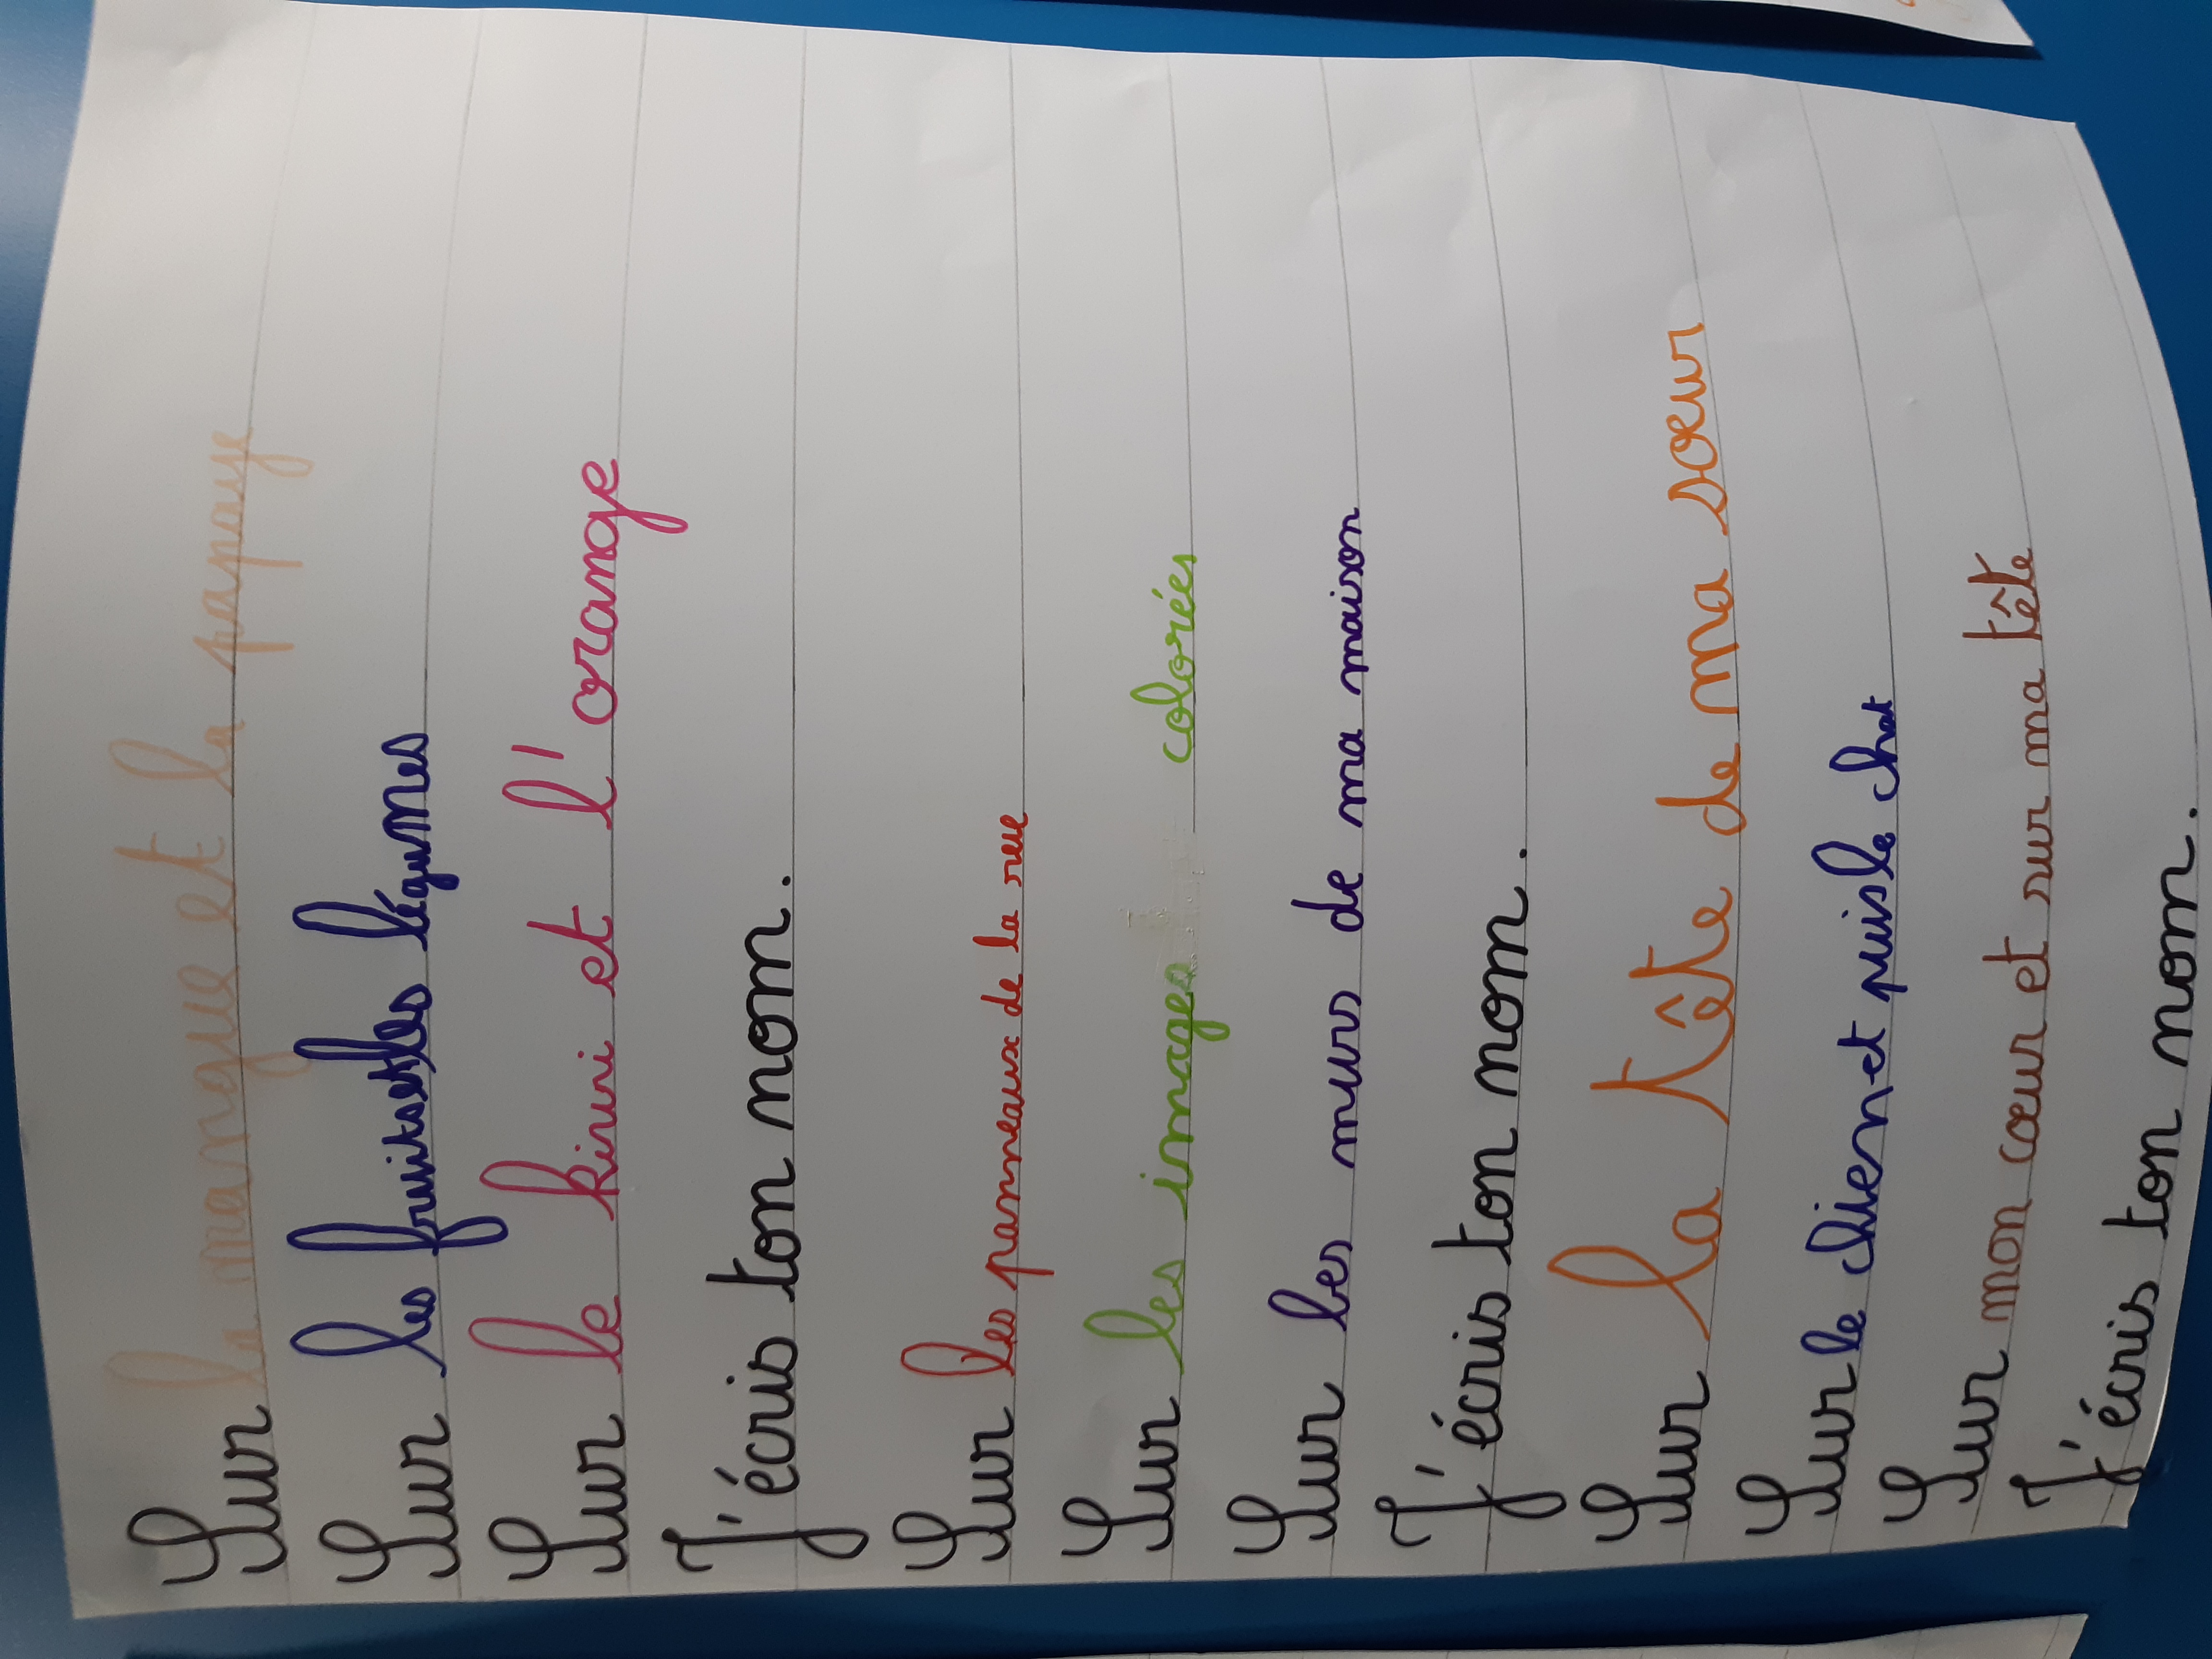 Sur la mangue et la papaye
Sur les fruits et les légumes
Sur le kiwi et l'orange
J'écris ton nom.
Sur les panneaux de la rue
Sur les images colorées
Sur les murs de ma maison
J'écris ton nom.
Sur la tête de ma soeur
Sur le chien et puis le chat
Sur mon cœur et sur ma tête
J'écris ton nom.